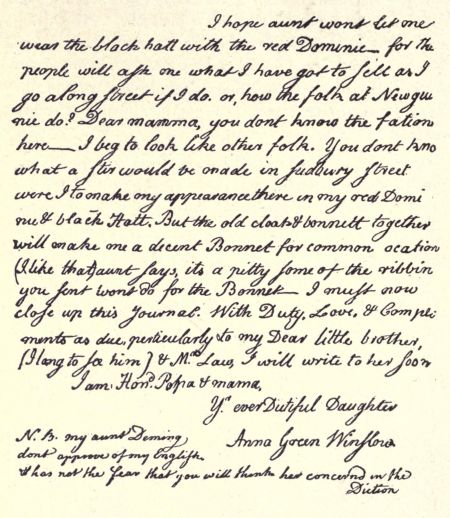 I hope aunt wont let me
wear the black hatt with the red Dominie — for the
people will ask me what I have got to sell as I
go along street if I do. or, how the folk at Newgui
nie do? Dear mamma, you dont know the fation
here — I beg to look like other folk. You dont kno
what a stir would be made in sudbury street
were I to make my appearance there in my red Domi
nie & black Hatt. But the old cloak & bonnett together
will make me a decent Bonnet for common ocation
(I like that) aunt says, its a pitty some of the ribbin
you sent wont do for the Bonnet — I must now
close up this Journal. With Duty, Love, & Compli-
ments as due, perticularly to my Dear little brother,
(I long to see him) & Mrs. Law, I will write to her soon
I am. Hond. Papa & mama,
Yr. ever Dutiful Daughter
Anna Green Winslow
N.B. my aunt Deming
dont approve of my English.
& has not the fear that you will think her concernd in the
Diction